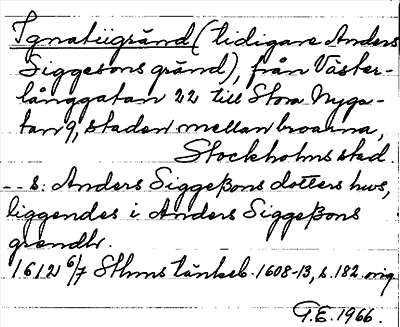 Ignatiigränd (tidigare Anders
Siggesons gränd), från Väster-
långgatan 22 till Stora Nyga-
tan 9, staden mellan broarna,
Stockholms stad.
-- s: Anders Siggeßons dotters huus,
liggendes i Anders Siggeßons
grendh.
1612 6/7 Sthms tänkeb. 1608-13, s. 182 orig
T.E. 1966.